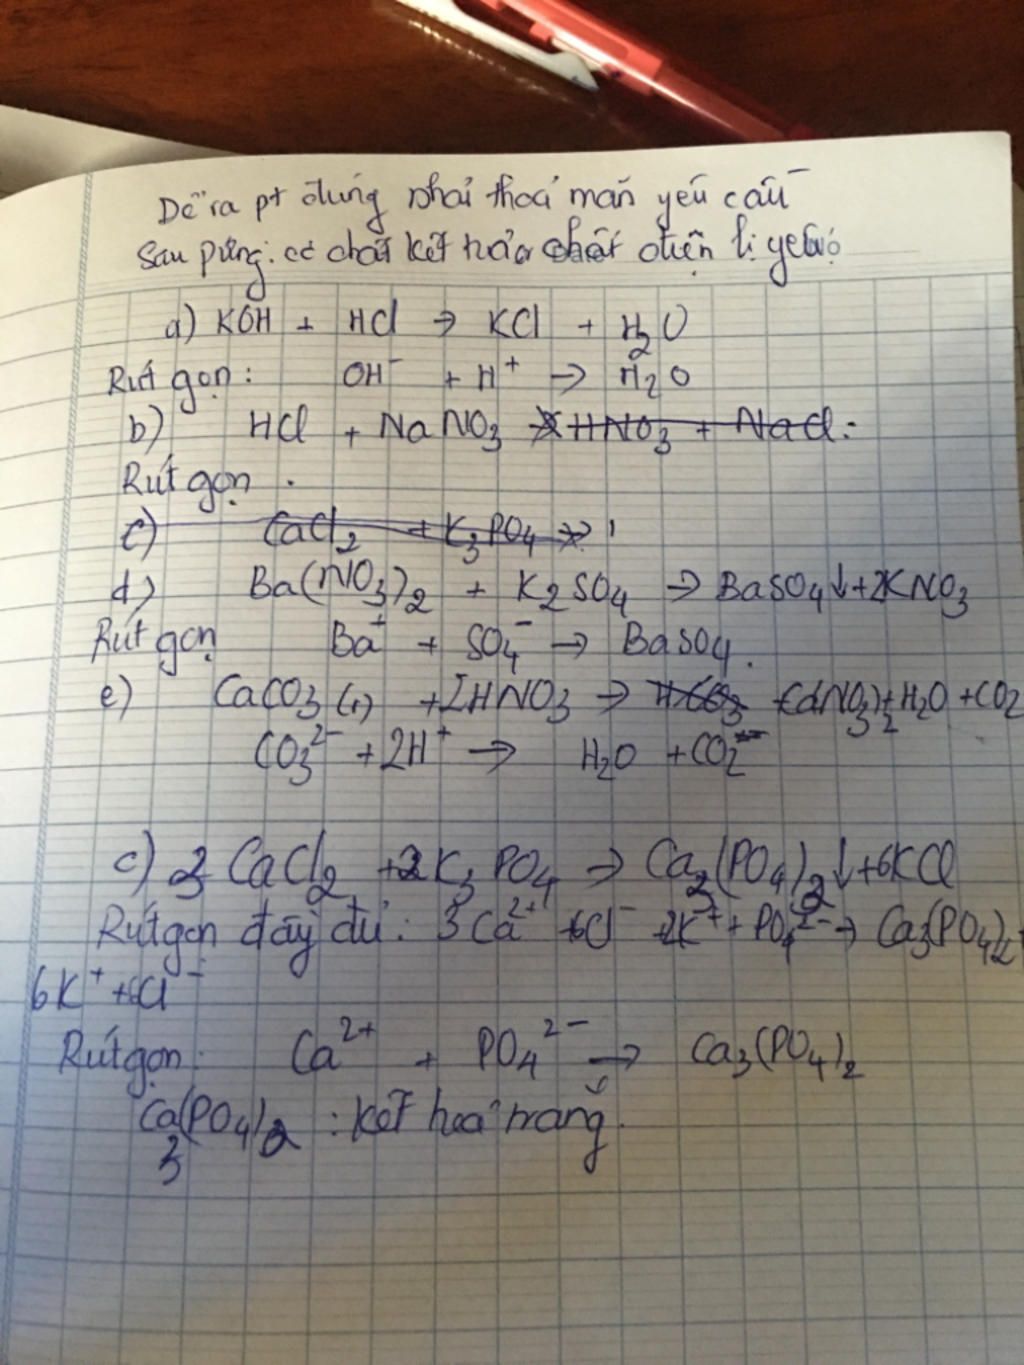 Để ra pt đúng phải thoả mãn yêu cầu
sau pứng: có chất kết tủa chất điện li yếu
a) KOH + HCl → KCl + H2O
Rút gọn: OH⁻ + H⁺ → H2O
b) HCl + NaNO3 HNO3 + NaCl.
Rút gọn .
c) CaCl2 + K3PO4 →
d) Ba(NO3)2 + K2SO4 → BaSO4↓ + 2KNO3
Rút gọn Ba⁺ + SO4⁻ → BaSO4.
e) CaCO3 (r) + 2HNO3 → Ca(NO3)2 + H2O + CO2
CO3²⁻ + 2H⁺ → H2O + CO2
c) 3 CaCl2 + 2K3PO4 → Ca3(PO4)2↓ + 6KCl
Rút gọn đầy đủ: 3Ca²⁺ + 6Cl⁻ + K⁺ + PO4²⁻ → Ca3(PO4)2 +
6K⁺ + 6Cl⁻
Rút gọn: Ca²⁺ + PO4²⁻ → Ca3(PO4)2
Ca3(PO4)2 : kết tủa trắng.